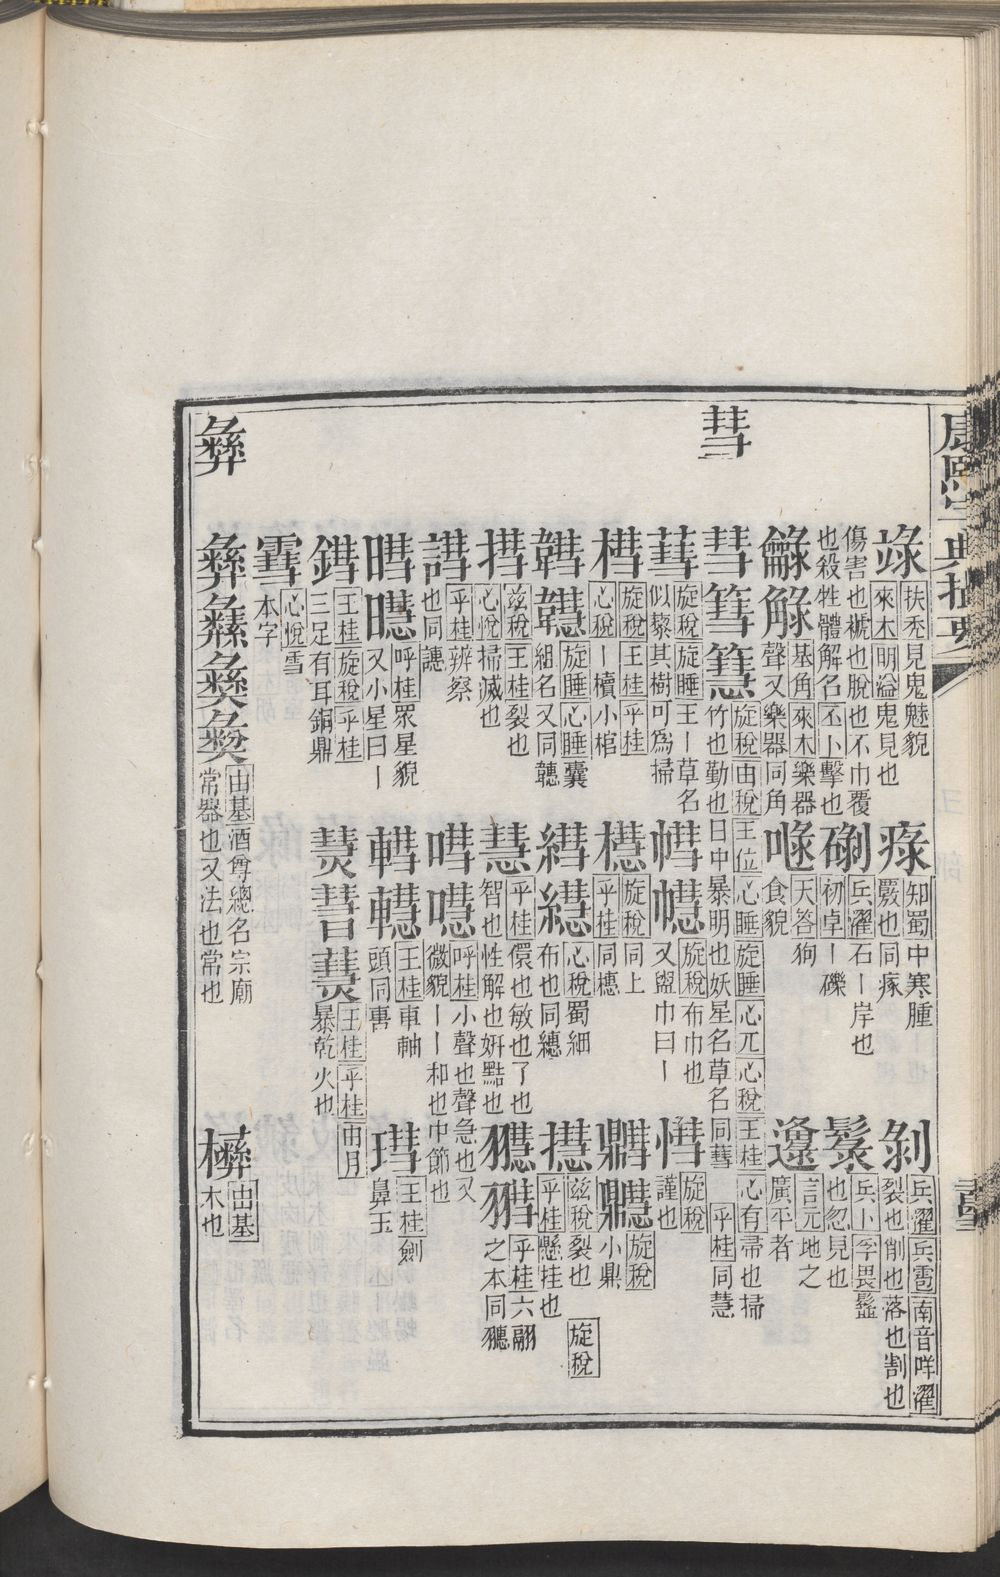 康熙字典撮要
彗
彝
䘵 扶禿 來木 見鬼魅貌 明溢 鬼見也
瘃 知蜀 中寒腫覈也同瘃
剝 兵濯 兵雹 南音咩濯 裂也削也落也割也
傷害也褫也脫也不巾覆也殺牲體解名 丕卜 擊也
硺 兵濯 石丨岸也 初卓 丨礫
鬉 兵卜 孚畏 髲也忽見也
龣 觮 基角 來木 樂器聲又樂器同角
喙 天答 狗食貌
邍 言元 地之廣平者
彗 篲 簪 旋稅 由稅 王位 心睡 旋睡 心兀 心稅 王桂 心有 帚也掃竹也勤也日中暴明也妖星名草名同彗 平桂 同慧
蔧 旋稅 旋睡 王丨草名似藜其樹可為掃
㥨 旋稅 布巾也又盥巾曰丨
惿 旋稅 謹也
槥 旋稅 王桂 平桂 心稅 丨櫝小棺
櫘 旋稅 同上 平桂 同櫘
鼎彗 鼎慧 旋稅 小鼎
韢 旋睡 心睡 囊組名又同韢
繐 繐 心稅 蜀細布也同繐
㩨 玆稅 裂也 平桂 懸挂也 旋稅
㨹 玆稅 王桂 裂也 心悅 掃滅也
慧 平桂 儇也敏也了也智也性解也姸黠也
平桂 六翮之本同
譿 平桂 辨察也同譓
嘒 嚖 呼桂 小聲也聲急也又微貌丨丨和也中節也
暳 呼桂 眾星貌又小星曰丨
轊 王桂 車軸頭同軎
璏 王桂 劍鼻玉
鏏 王桂 旋稅 平桂 三足有耳銅鼎
熭 王桂 平桂 由月 暴乾火也
䨮 心悅 雪本字
彝 由基 酒尊總名宗廟常器也又法也常也
㰘 由基 木也